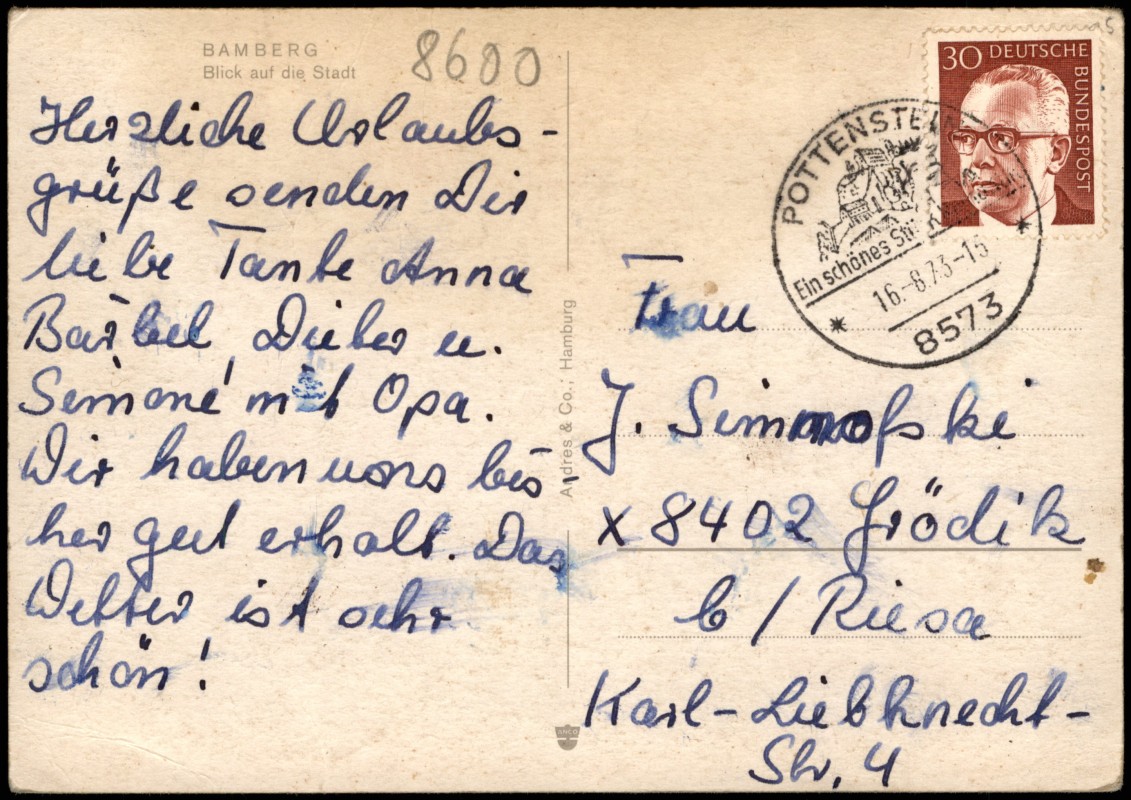 BAMBERG
Blick auf die Stadt
8600
Herzliche Urlaubs-
grüße senden Dir
liebe Tante Anna
Bärbel, Dieter u.
Simone mit Opa.
Wir haben uns bis-
her gut erholt. Das
Wetter ist sehr
schön!
Andres & Co., Hamburg
ANCO
30 DEUTSCHE
BUNDESPOST
POTTENSTEIN
Ein schönes
16.-8.73-15
8573
Frau
J.
x 8402 Grödik
b / Riesa
Karl-Liebknecht-
Str. 4